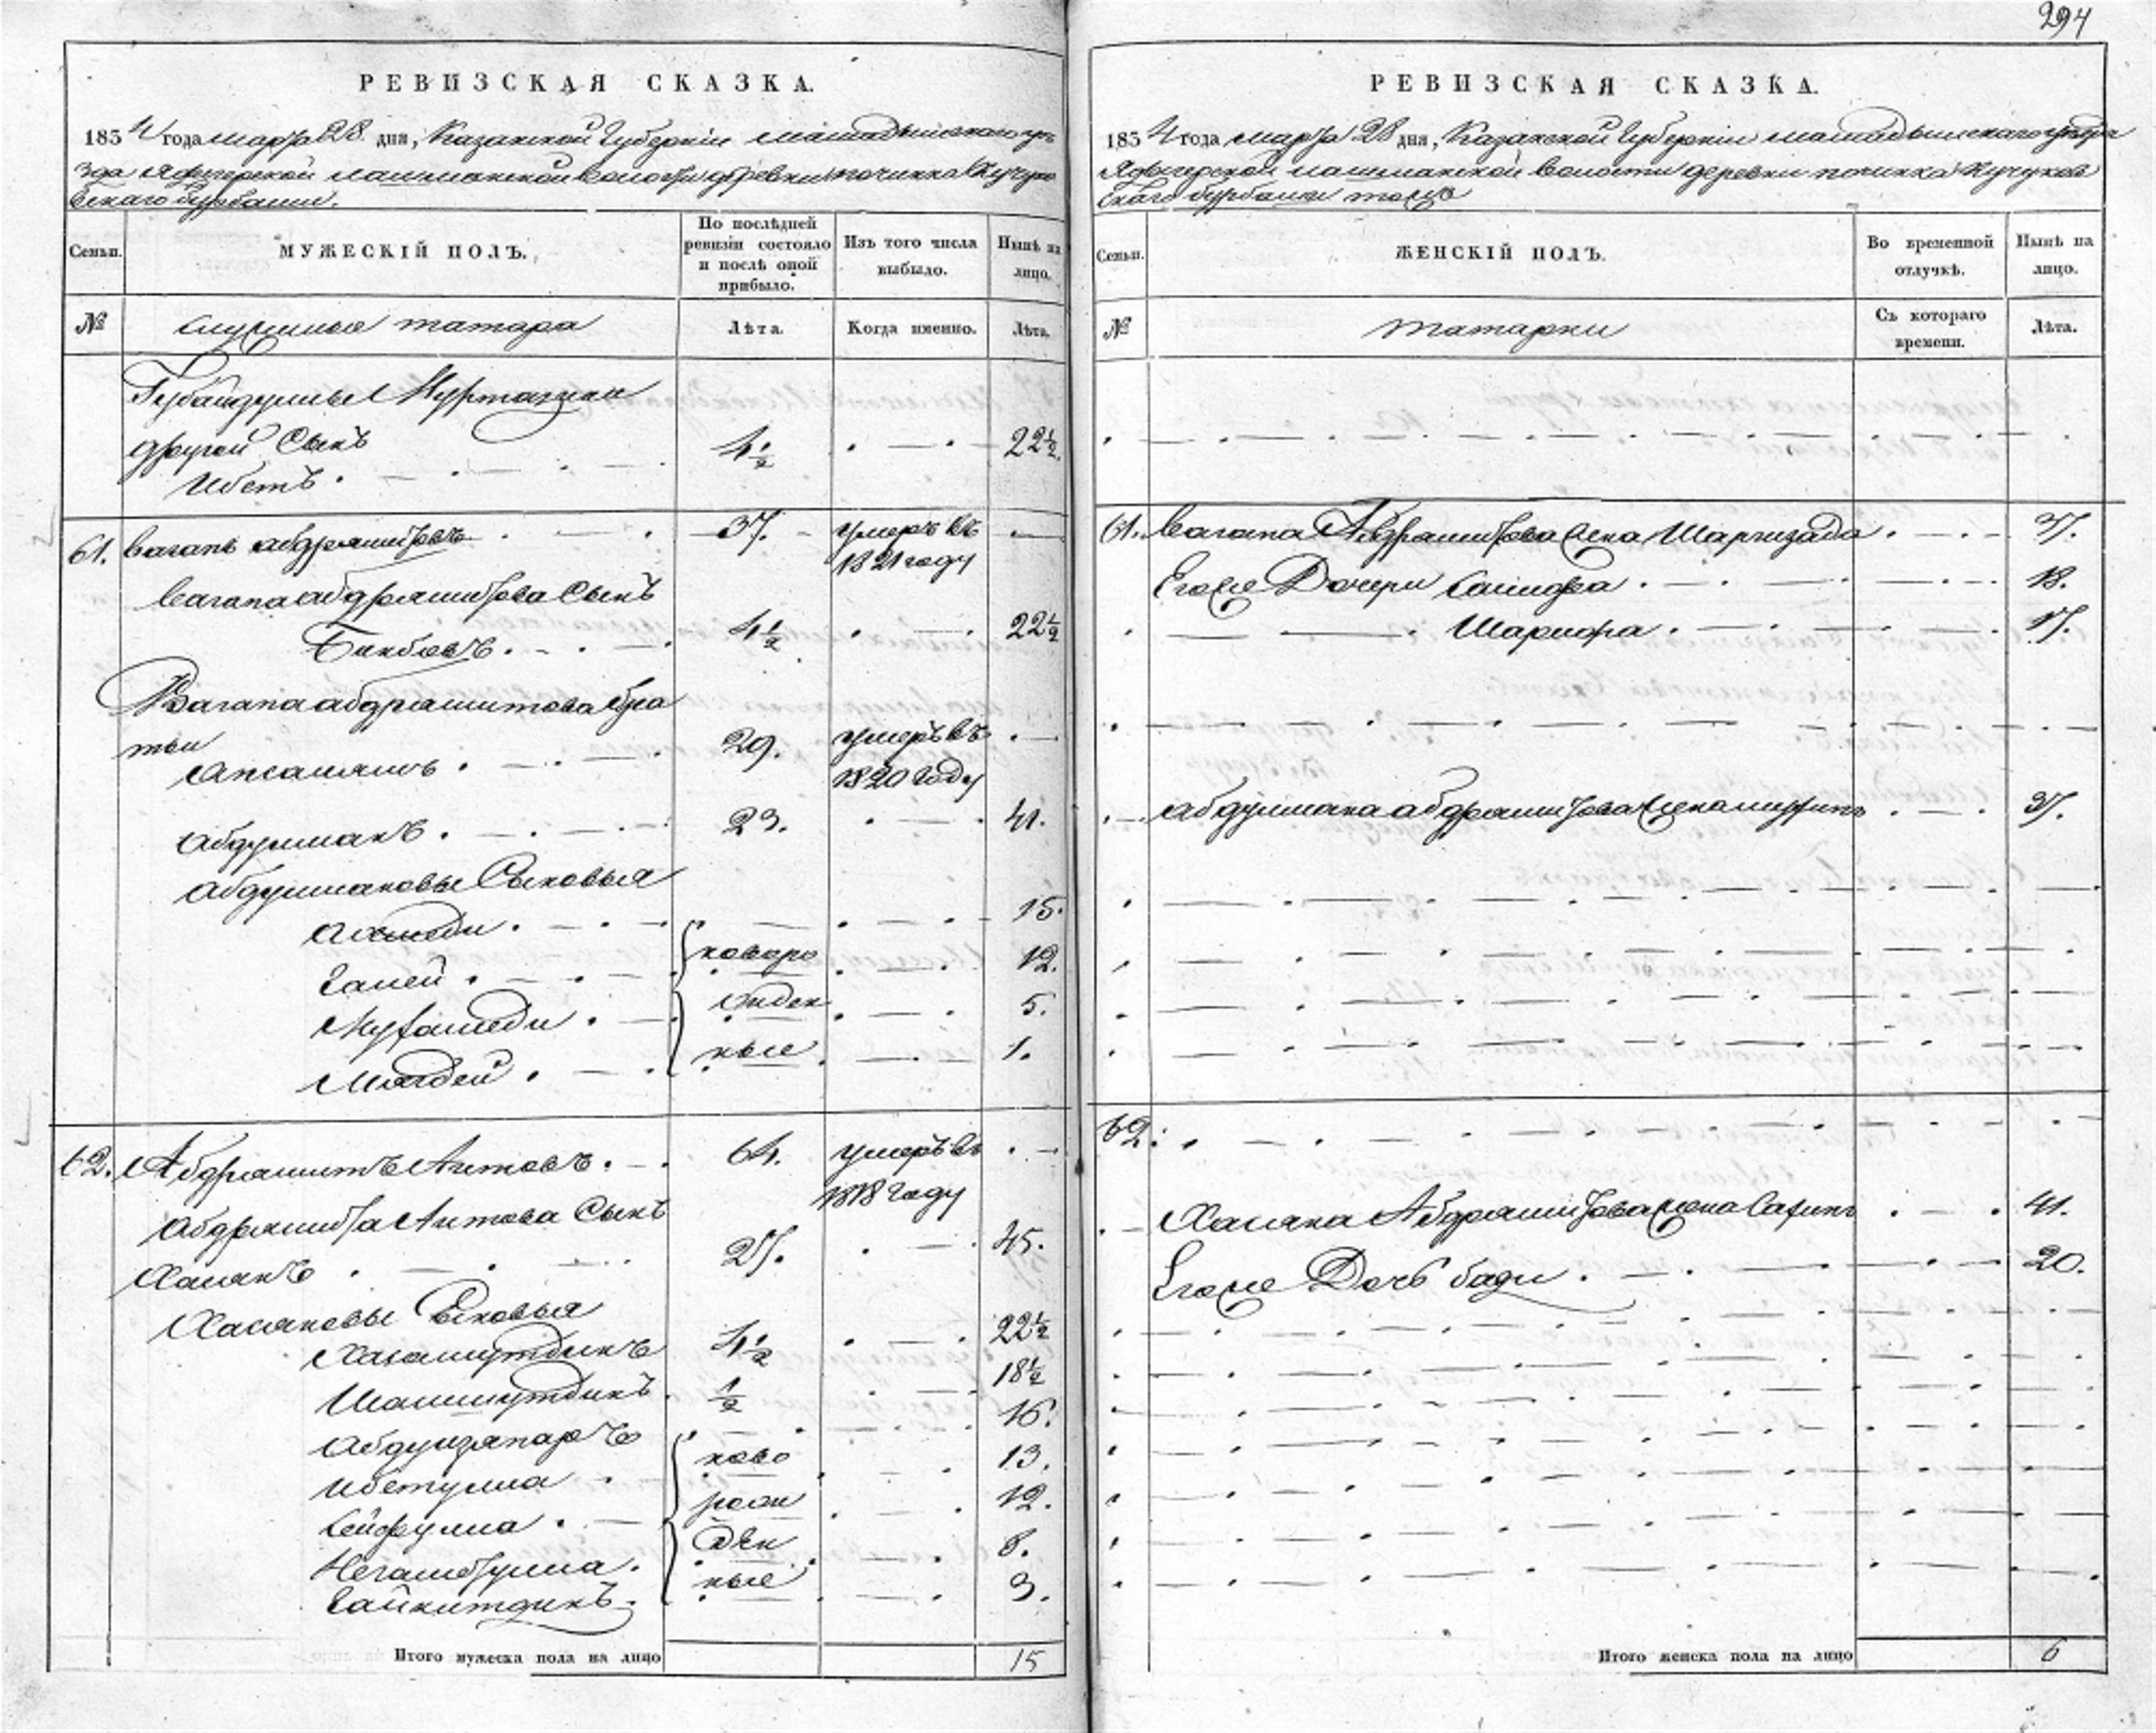 294
РЕВИЗСКАЯ СКАЗКА.
1834 года марта 28 дня, Казанской Губернiи Мамадышскаго уѣ
зда лашманской волости деревни починка Кучуко
вскаго Бурбаши.
Семьи.
МУЖЕСКІЙ ПОЛЪ.
По послѣдней ревизіи состояло и послѣ оной прибыло.
Изъ того числа выбыло.
Нынѣ на лицо.
№
служилые татара
Лѣта.
Когда именно.
Лѣта.
Губайдуллы Муртазин
другой Сынъ
Ибетъ. 4½ 22½.
61. Вагапъ абдрашитовъ 37. умеръ въ
1821 году
Вагапа абдрашитова Сынъ
Бикбовъ. 4½ 22½
Вагапа абдрашитова бра
тьи
29. умеръ въ
1820 году
абдулманъ. 23. 41.
абдулмановы Сыновья
15.
Галей. новоро 12.
жден 5.
ные 1.
62. Абдрашитъ Аитовъ. 64. умеръ въ
1818 году
абдрашита Аитова Сынъ
Хасянъ 27. 45.
Хасяновы Сыновья
Хисамутдинъ 4½ 22½
Шамсутдинъ. ½ 18½
16.
Ибетулла ново 13.
Сейфулла рож 12.
Негаметулла. ден 8.
Зайнитдинъ. ные 3.
Итого мужеска пола на лицо 15
РЕВИЗСКАЯ СКАЗКА.
1834 года марта 28 дня, Казанской Губернiи мамадышскаго уѣзда
лашманской волости деревни починка Кучуков
скаго бурбаши тожъ
Семьи.
ЖЕНСКІЙ ПОЛЪ.
Во временной отлучкѣ.
Нынѣ на лицо.
№
татарки
Съ котораго времени.
Лѣта.
61. Вагапа Абдрашитова жена 37.
Его же Дочери 18.
17.
абдулмана абдрашитова жена 37.
62.
Хасяна Абдрашитова жена 41.
Его же Дочь бади. 20.
Итого женска пола на лицо 6